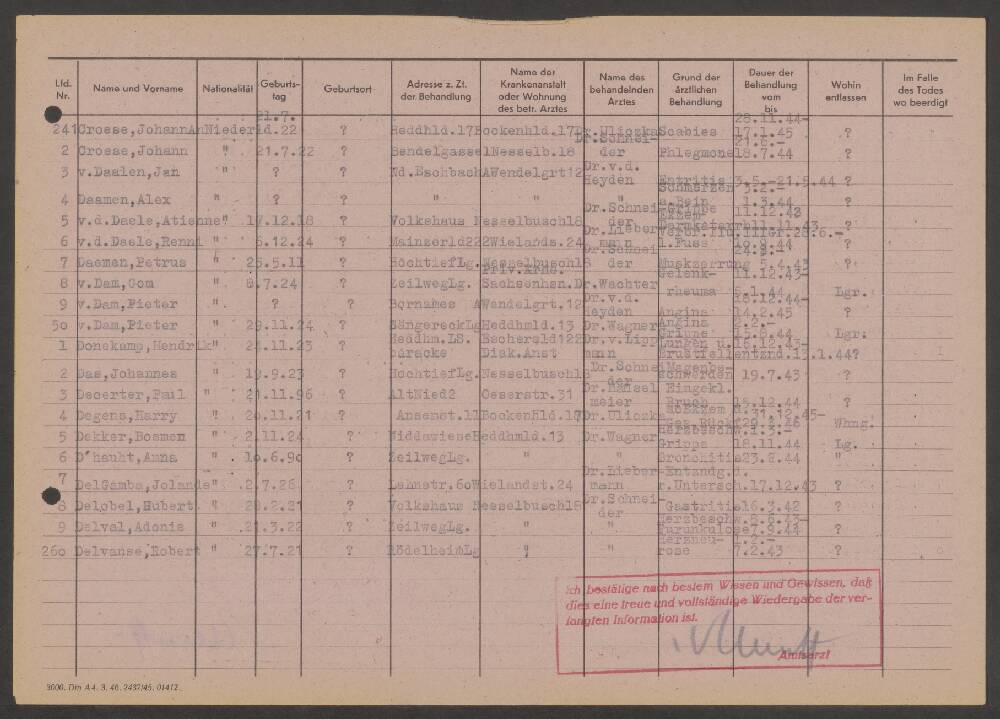 Lfd. Nr. Name und Vorname Nationalität Geburtstag Geburtsort Adresse z. Zt. der Behandlung Name der Krankenanstalt oder Wohnung des betr. Arztes Name des behandelnden Arztes Grund der ärztlichen Behandlung Dauer der Behandlung vom bis Wohin entlassen Im Falle des Todes wo beerdigt
21.7. 28.11.44-
241 Croese, Johann An Niederld. 22 ? Heddhld.17 Bockenhld.17 Dr.Uliczka Scabies 17.1.45 ?
Dr.Schnei- 21.6.-
2 Croese, Johann " 21.7.22 ? Bendelgasse1 Nesselb.18 der Phlegmone 18.7.44 ?
Dr.v.d.
3 v.Daalen, Jan " ? ? Nd.Eschbach AWendelgrt12 Heyden Entritis 3.5.-21.5.44 ?
Schmerzen 3.2.-
4 Daamen, Alex " ? ? " " " a.Bein 1.3.44 ?
Dr.Schnei- Grippe 11.12.42
5 v.d.Daele, Atienne " 17.12.18 ? Volkshaus Nesselbusch18 der 11.1.43 ?
Dr.Lieber- 28.6.-
6 v.d.Daele, Renni " 6.12.24 ? Mainzerld222 Wielands.24 mann l.Fuss 10.9.44 ?
Dr.Schnei- 24.3.-
7 Daemen, Petrus " 25.5.11 ? HöchtiefLg. Nesselbusch18 der Muskzerrung 5.4.43 ?
Priv.Krhs. Gelenk- 11.12.43-
8 v.Dam, Com " 8.7.24 ? ZeilwegLg. Sachsenhsn. Dr.Wachter rheuma 5.1.44 Lgr.
Dr.v.d. 18.12.44-
9 v.Dam, Pieter " ? ? Bornames AWendelgrt.12 Heyden Angina 14.2.45 ?
Angina 2.2.-
5o v.Dam, Pieter " 29.11.24 ? SängereckLg Heddhmld.13 Dr.Wagner Grippe 15.8.44 Lgr.
Heddhm.LS. Escherslld122 Dr.v.Lipp Lungen u. 16.12.43-
1 Donekamp, Hendrik " 24.11.23 ? baracke Diak.Anst mann Brustfellentznd.13.1.44 ?
Dr.Schnei Magenbe-
2 Das, Johannes " 19.9.23 ? HochtiefLg. Nesselbusch18 der schwerden 19.7.43 ?
Dr.Hänsel Eingekl.
3 Decerter, Paul " 21.11.96 ? AltNied2 Oeserstr.31 meier Bruch 15.12.44 ?
31.12.45-
4 Degens, Harry " 20.11.21 ? Ansenst.11 BockenHld.17 Dr.Uliczka Whng.
Herzbeschw. 1.3.-
5 Dekker, Bosmen " 2.11.24 ? Niddawiese Heddhmld.13 Dr.Wagner Grippe 18.11.44 Lg.
6 D'hauht, Anna " 1o.6.9o ? ZeilwegLg. " " Bronchitis 23.2.44 "
Dr.Lieber- Entzndg.d.
7 DelGamba, Jolande " 2.7.26 ? Lahnstr.6o Wielandst.24 mann r.Untersch. 17.12.43 ?
Dr.Schnei-
8 Delobel, Hubert " 20.2.21 ? Volkshaus Nesselbusch18 der Gastritis 16.3.42 ?
Herzbeschw. 8.6.43-
9 Delval, Adonis " 21.3.22 ? ZeilwegLg. " " Furunkulose 7.9.44 ?
Herzneu- 1.2.-
26o Delvanse, Robert " 27.7.21 ? RödelheimLg " " rose 7.2.43 ?
Ich bestätige nach bestem Wissen und Gewissen, daß
dies eine treue und vollständige Wiedergabe der ver-
langten Information ist.
Amtsarzt
3000. Dm A4. 3. 46. 2437/45. 01412.